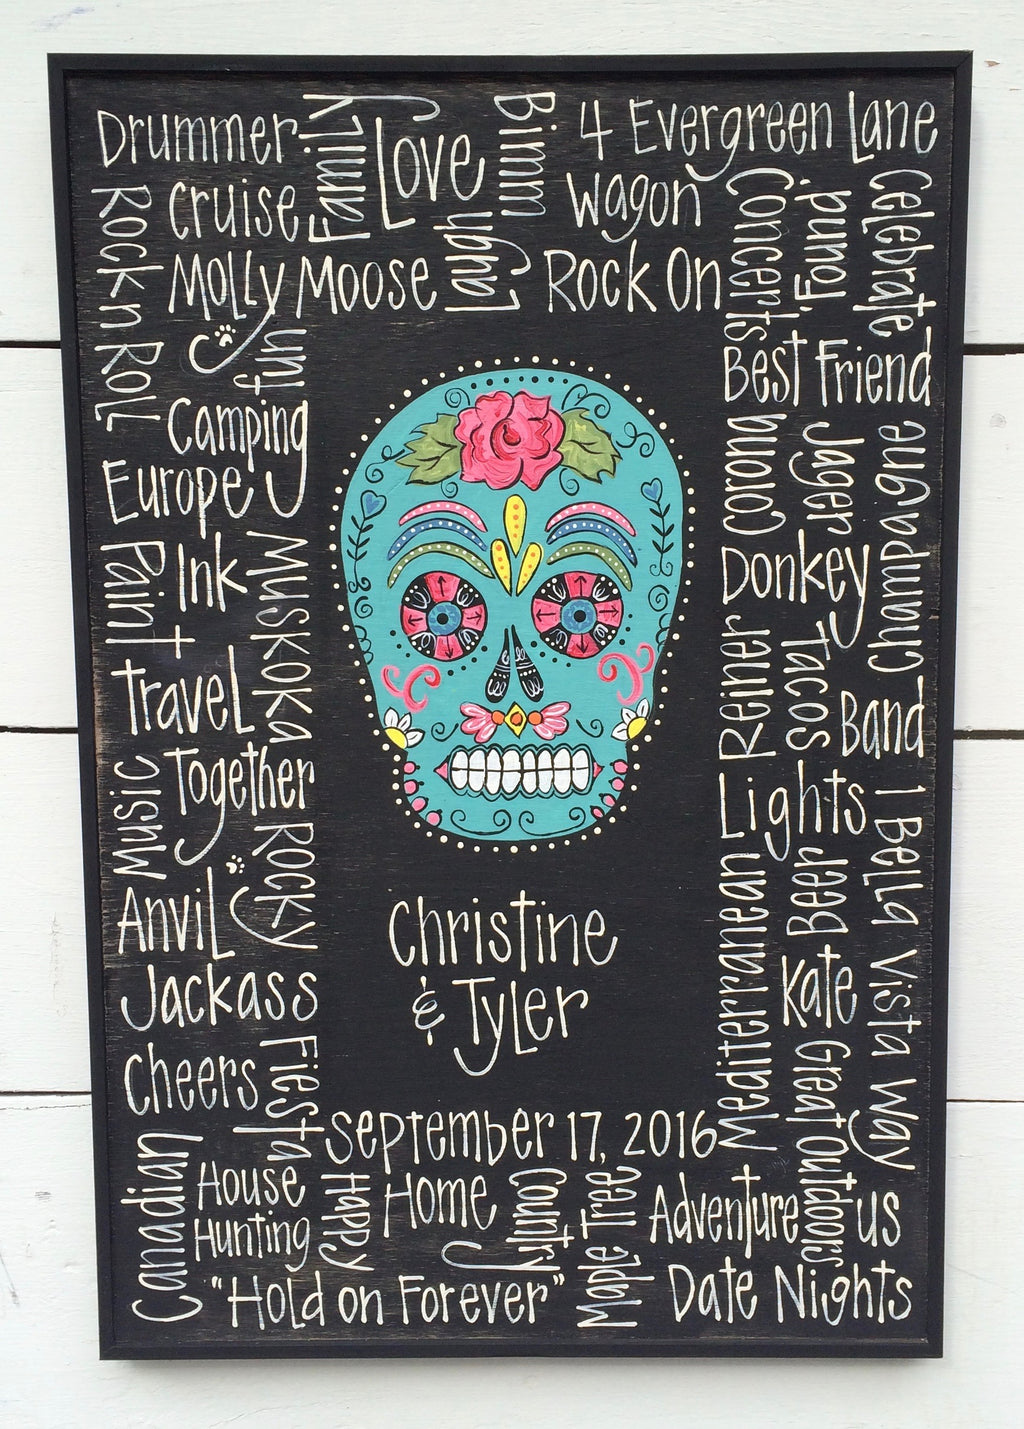 Drummer
Family
Love
Bimn
4 Evergreen Lane
Rock n Roll
Cruise
Laugh
Wagon
Concerts
found
Celebrate
Molly Moose
Rock On
fun
Best Friend
Camping
Corona
Jager
Champagne
Europe
Paint
Ink
+
Muskoka
Donkey
Travel
Reiner
Tacos
Band
Music
Together
Lights
1 Bella Vista Way
Rocky
Anvil
Mediterranean
Beer
Christine
& Tyler
Jackass
Kate
Cheers
Fiesta
Great Outdoors
September 17, 2016
Canadian
House
Hunting
Happy
Home
Country
Maple Tree
Adventure
us
"Hold on Forever"
Date Nights